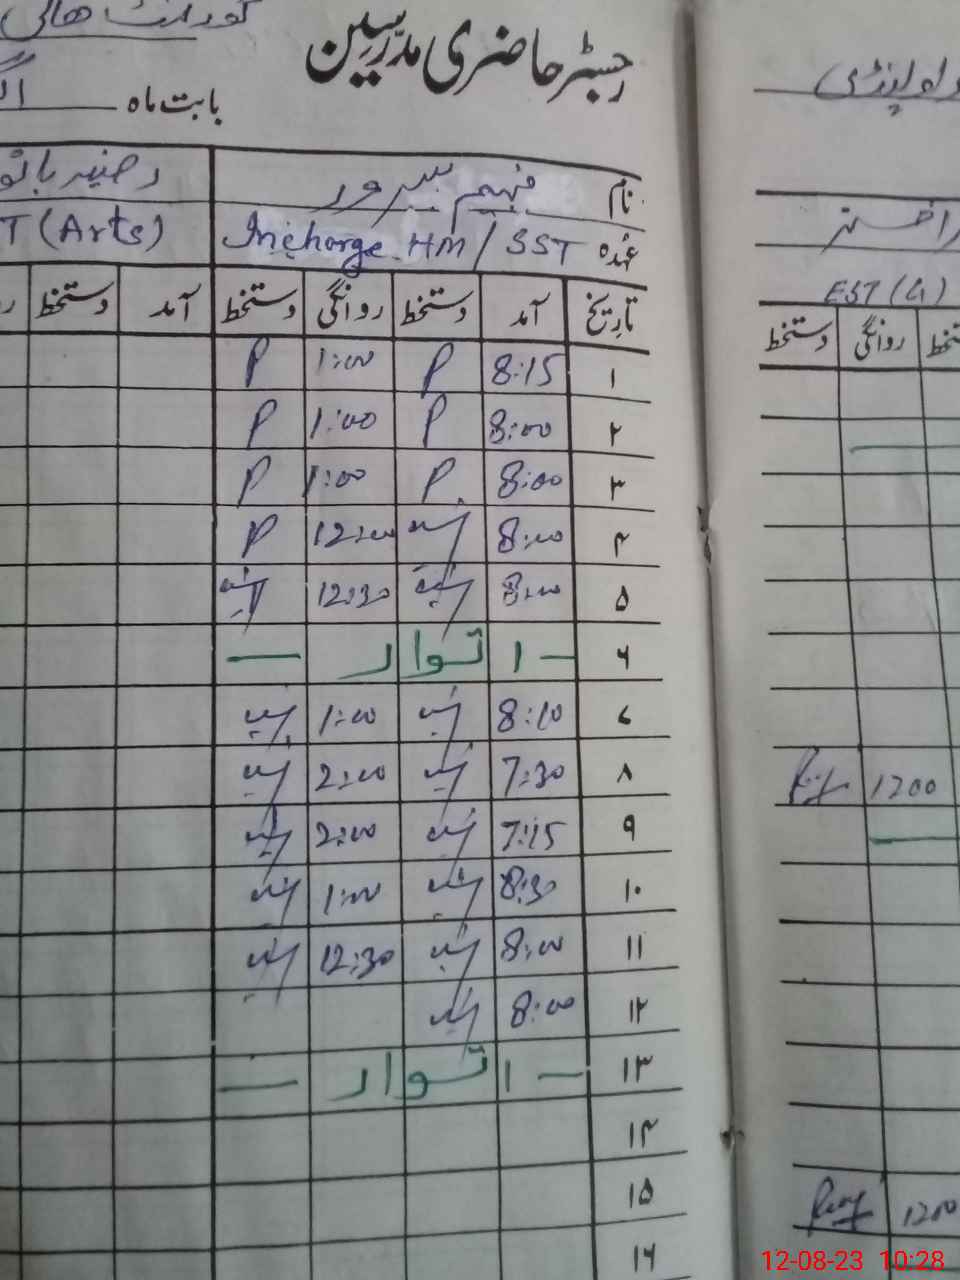 گورنمنٹ ہائی
رجسٹر حاضری مدرسین
بابت ماہ
راولپنڈی
نام فہیم سرور
عہدہ Incharge HM / SST
T (Arts)
EST (
تاریخ آمد دستخط روانگی دستخط آمد دستخط
دستخط روانگی دستخط
۱ 8:15 P 1:00 P
۲ 8:00 P 1:00 P
۳ 8:00 P 1:00 P
۴ 8:00 12:00 P
۵ 8:00 12:30
۶ - اتوار -
۷ 8:10 1:00
۸ 7:30 2:00
1200
۹ 7:15 2:00
۱۰ 8:30 1:00
۱۱ 8:00 12:30
۱۲ 8:00
۱۳ - اتوار -
۱۴
۱۵
1200
۱۶
12-08-23 10:28